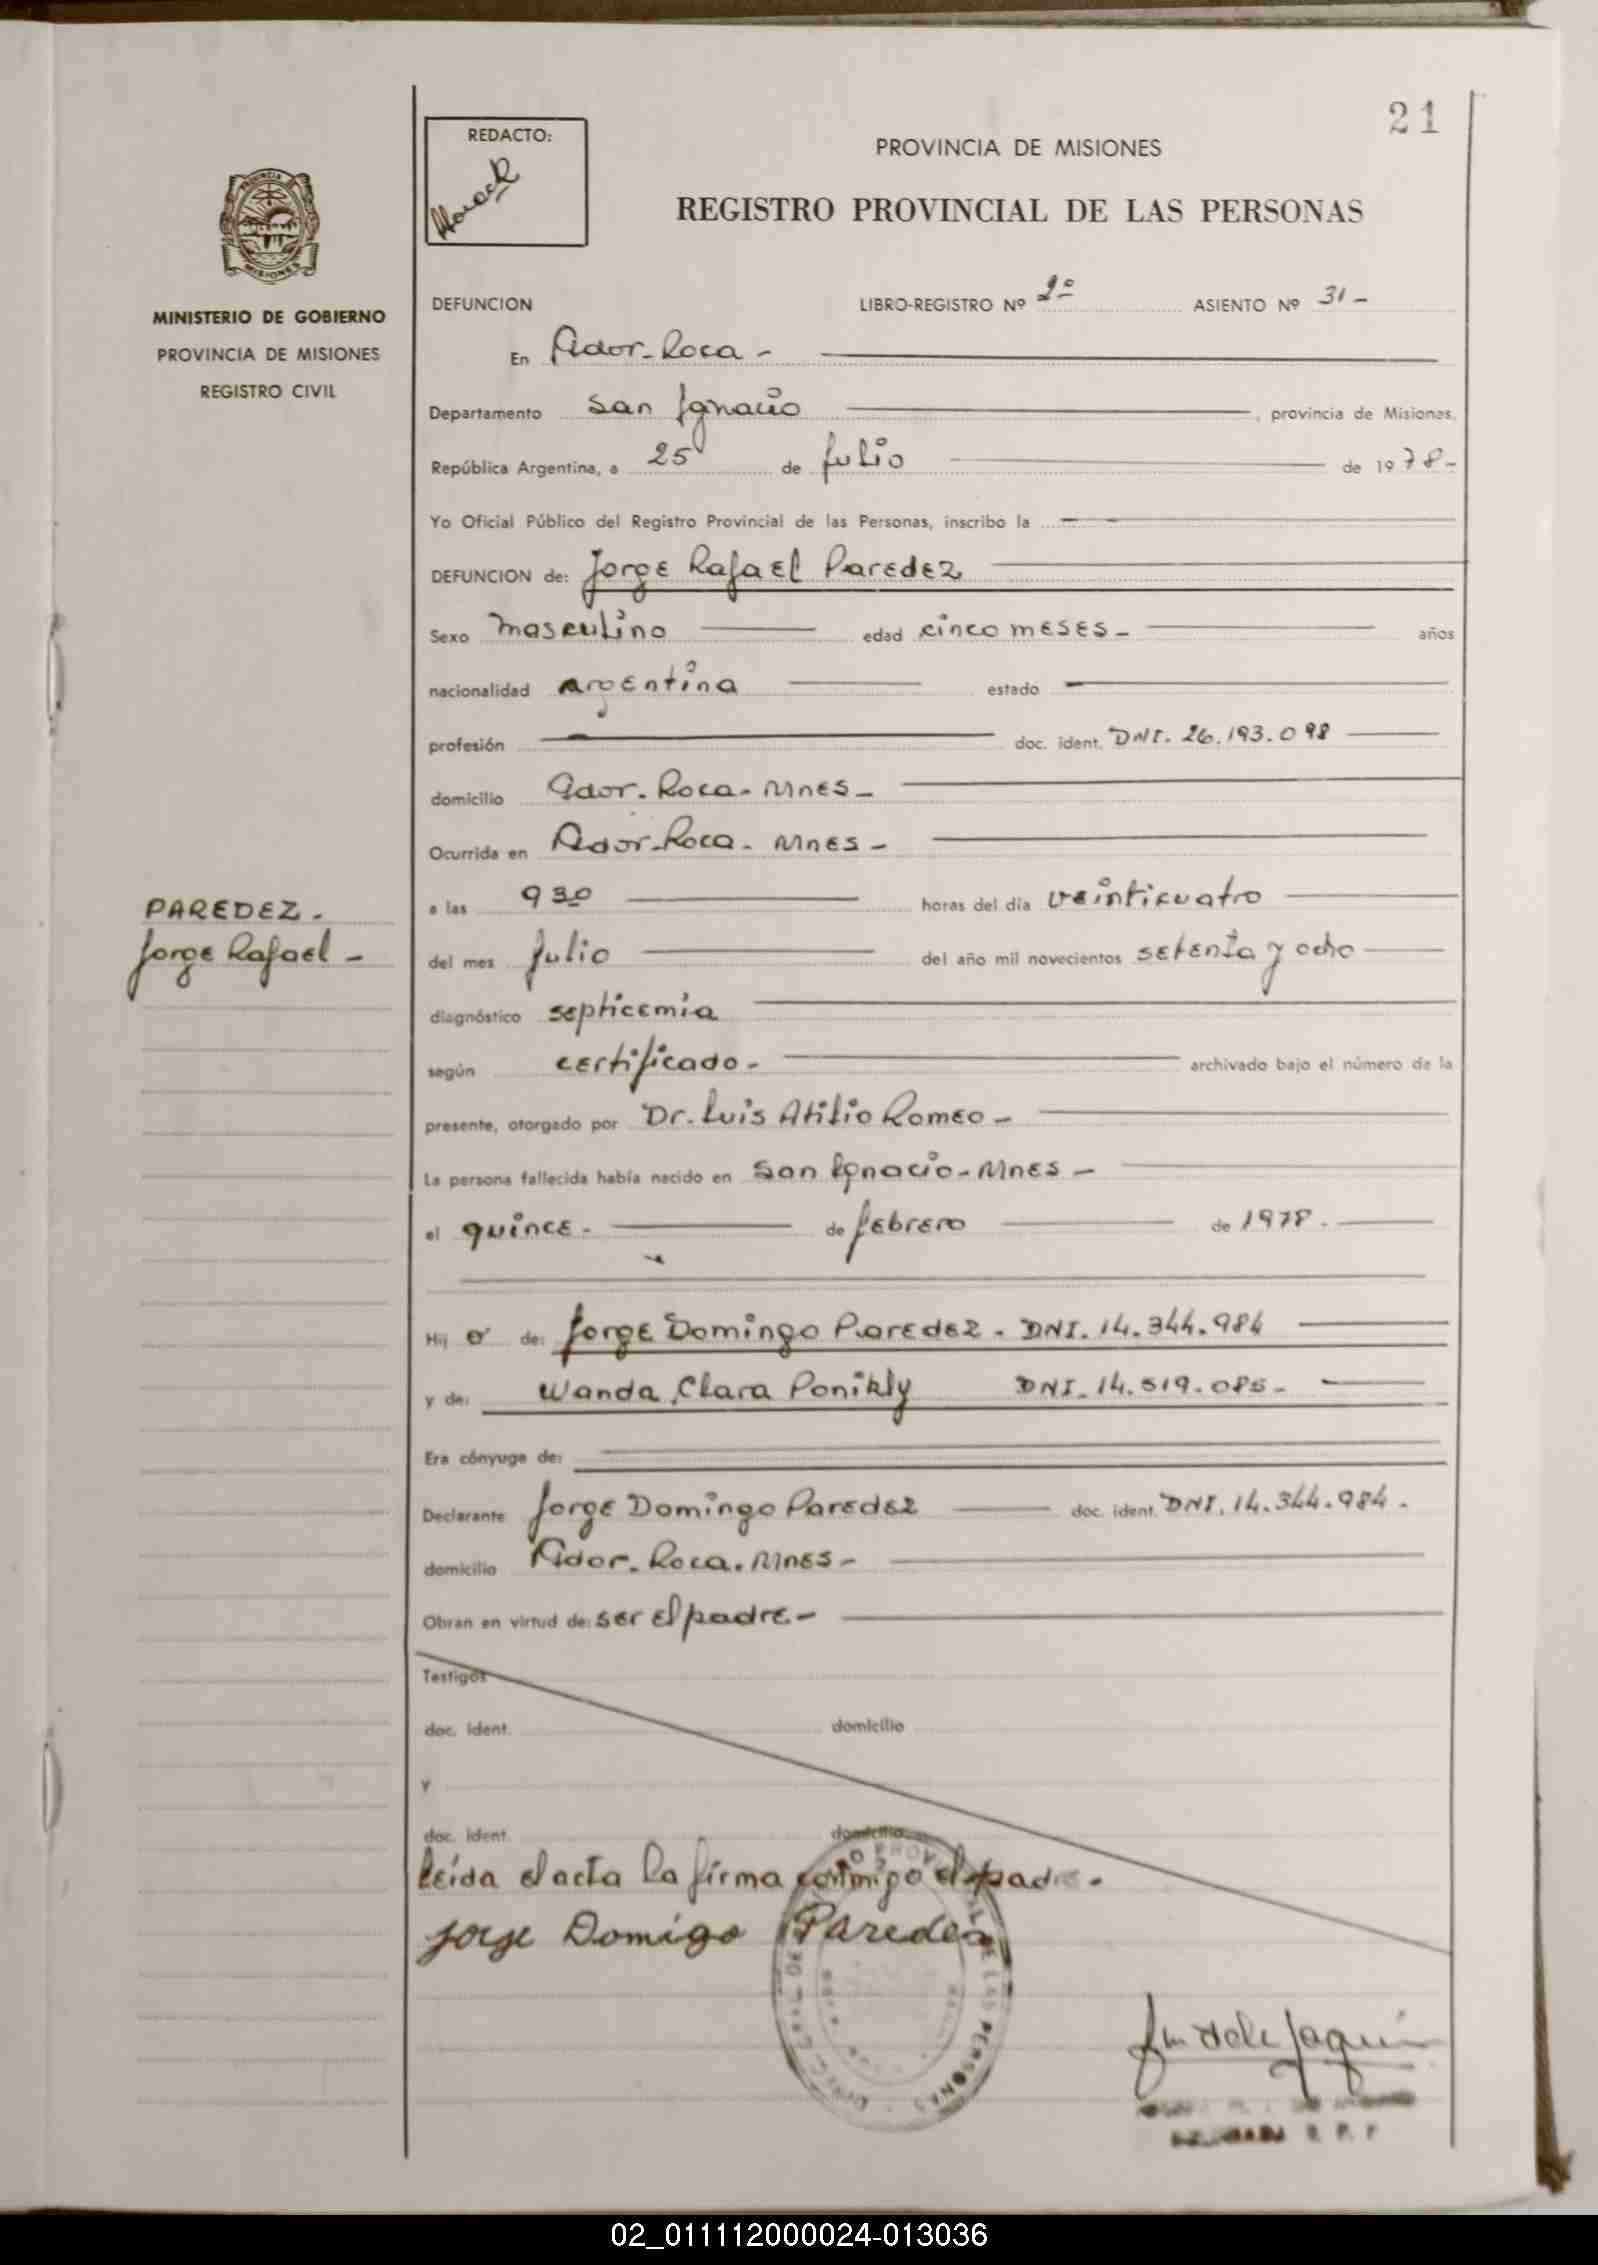 21
REDACTO:
PROVINCIA DE MISIONES
REGISTRO PROVINCIAL DE LAS PERSONAS
PROVINCIA
MISIONES
MINISTERIO DE GOBIERNO
PROVINCIA DE MISIONES
REGISTRO CIVIL
DEFUNCION LIBRO-REGISTRO Nº 2º ASIENTO Nº 31-
En Gdor-Roca-
Departamento San Ignacio, provincia de Misiones,
República Argentina, a 25 de Julio de 1978-
Yo Oficial Público del Registro Provincial de las Personas, inscribo la
DEFUNCION de: Jorge Rafael Paredez
Sexo masculino edad cinco meses- años
nacionalidad argentina estado
profesión doc. ident. DNI. 26.193.098
domicilio Gdor. Roca. Mnes-
Ocurrida en Gdor-Roca. Mnes-
PAREDEZ.
Jorge Rafael-
a las 930 horas del día veinticuatro
del mes Julio del año mil novecientos setenta y ocho
diagnóstico septicemia
según certificado- archivado bajo el número de la
presente, otorgado por Dr. Luis Atilio Romeo-
La persona fallecida había nacido en San Ignacio-Mnes-
el quince- de febrero de 1978.
Hij o de: Jorge Domingo Paredez. DNI. 14.344.984
y de: Wanda Clara Ponikly DNI. 14.519.085-
Era cónyuge de:
Declarante Jorge Domingo Paredez doc. ident. DNI. 14.344.984.
domicilio Gdor. Roca. Mnes-
Obran en virtud de: ser el padre-
Testigos
doc. ident. domicilio
y
doc. ident. domicilio
Leída el acta la firma conmigo el padre.
Jorge Domigo Paredez
DE LAS PERSONAS
02_011112000024-013036